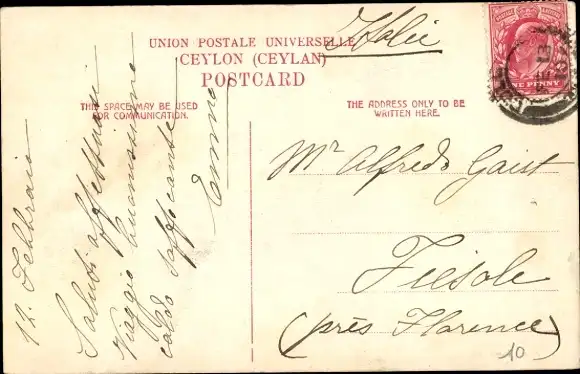 Italie
UNION POSTALE UNIVERSELLE
CEYLON (CEYLAN)
POSTCARD
THIS SPACE MAY BE USED
FOR COMMUNICATION.
THE ADDRESS ONLY TO BE
WRITTEN HERE.
12. Febbraio
Saluti affettuosi
Viaggio buonissimo
caldo soffocante
Emma
Mr Alfredo Gaist
Fiesole
(près Florence)
10
ONE PENNY